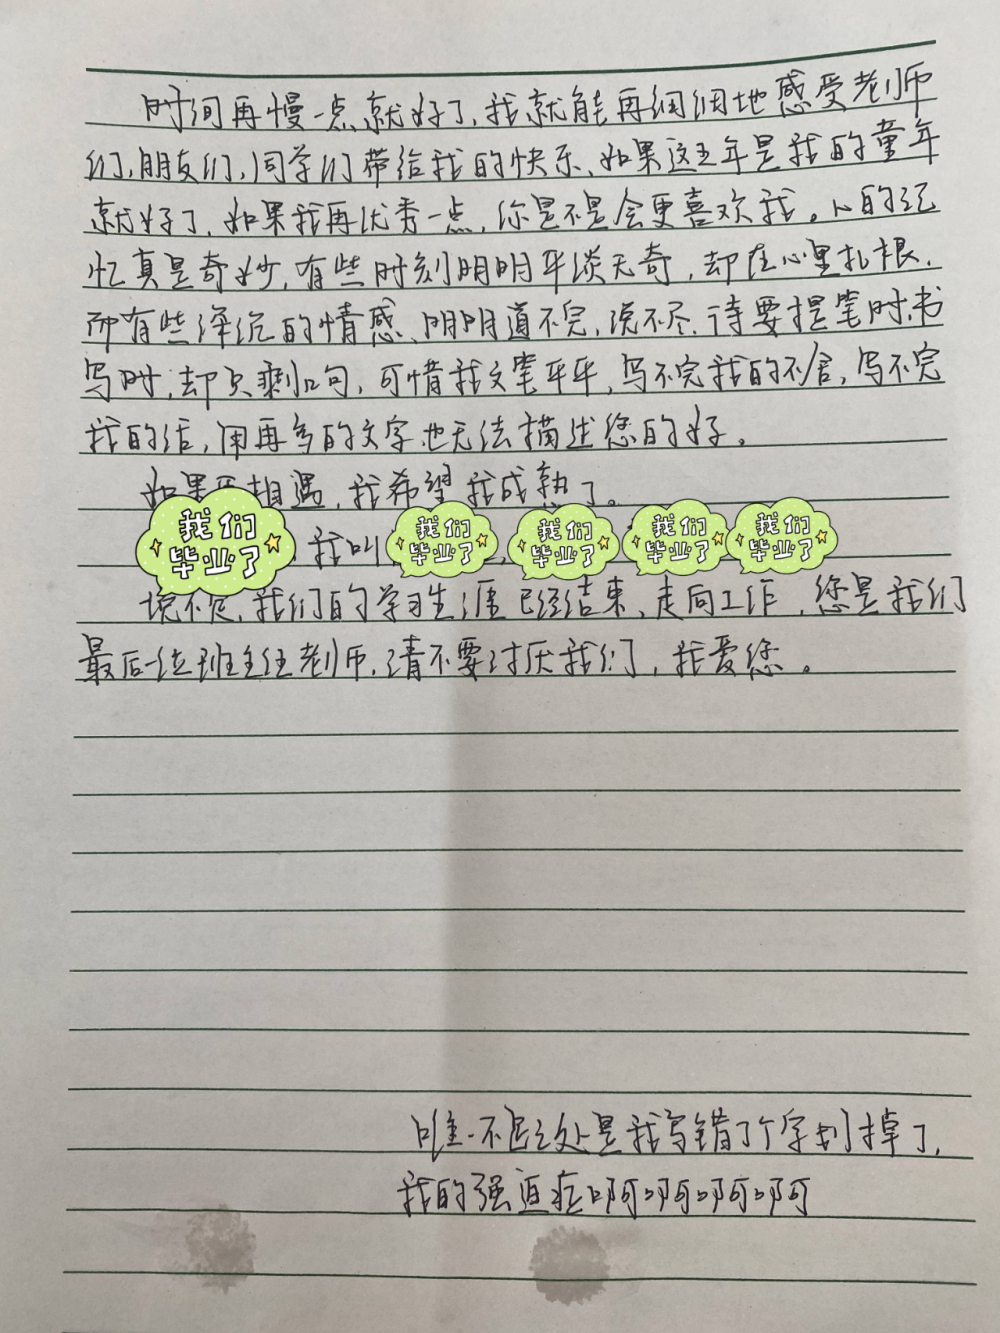 时间再慢一点就好了,我就能再细细地感受老师
们,朋友们,同学们带给我的快乐、如果这五年是我的童年
就好了,如果我再优秀一点,你是不是会更喜欢我。人的记
忆真是奇妙,有些时刻明明平淡无奇,却在心里扎根,
而有些深沉的情感、明明道不完,说不尽,待要提笔时书
写时,却只剩口句,可惜我文笔平平,写不完我的不舍,写不完
我的话,用再多的文字也无法描述您的好。
如果再相遇,我希望我成熟了。
我们毕业了
我叫
我们毕业了
我们毕业了
我们毕业了
我们毕业了
说不定,我们的学习生涯已经结束,走向工作,您是我们
最后一位班主任老师,请不要讨厌我们,我爱您。
唯一不足之处是我写错了个字划掉了,
我的强迫症啊啊啊啊